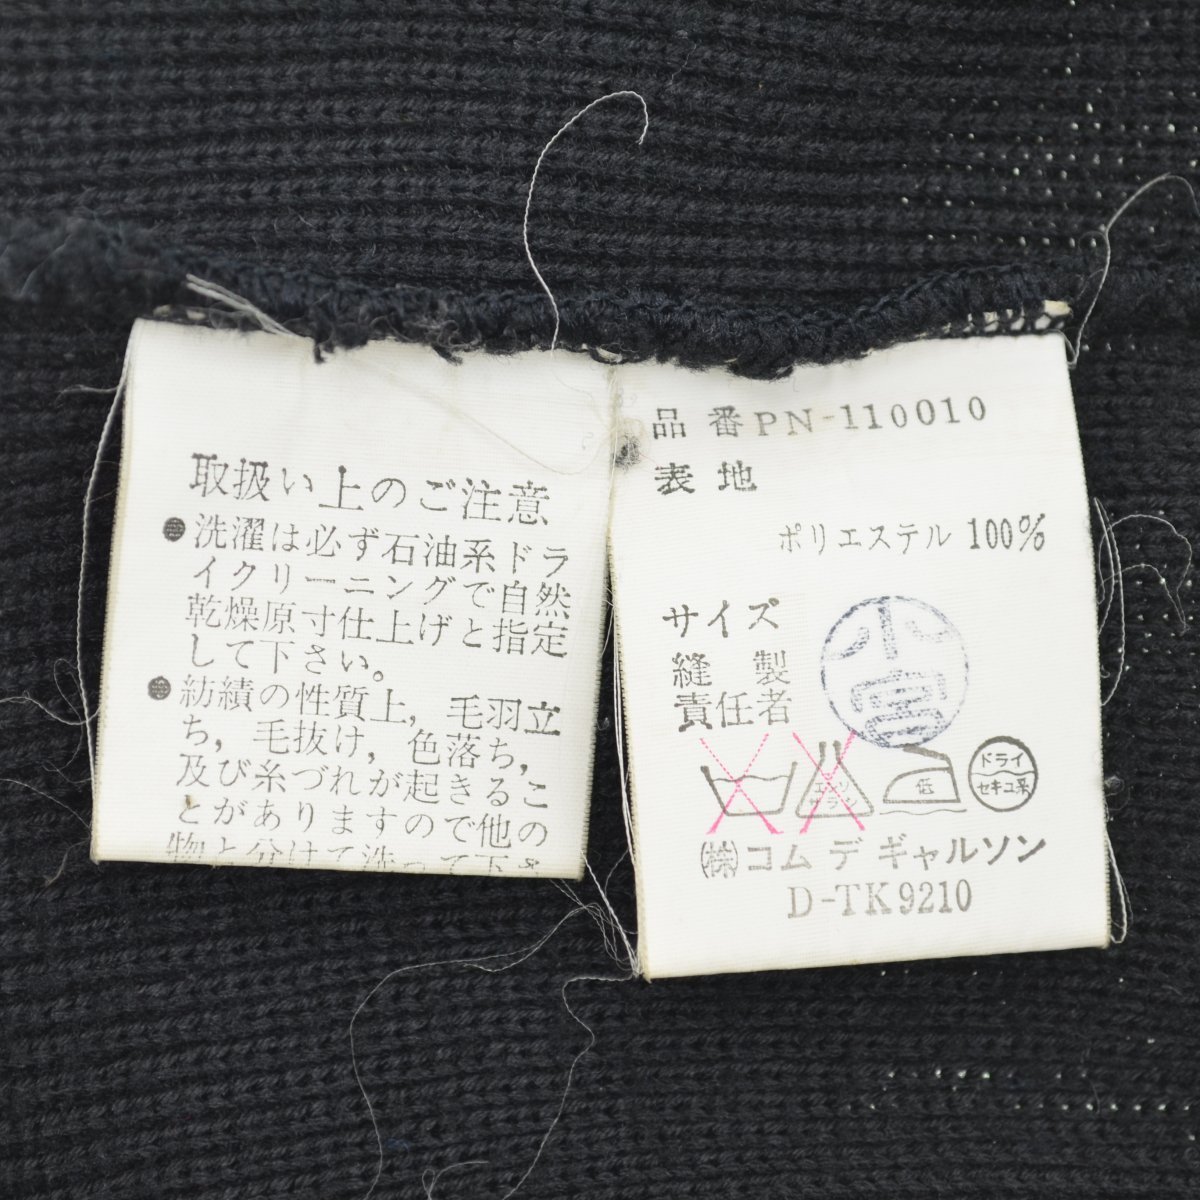 取扱い上のご注意
●洗濯は必ず石油系ドラ
イクリーニングで自然
乾燥原寸仕上げと指定
して下さい。
●紡績の性質上，毛羽立
ち，毛抜け，色落ち，
及び糸づれが起きるこ
とがありますので他の
物と分けて洗って下さ
品番 PN-110010
表地
ポリエステル 100%
サイズ
縫製
責任者
小宮
エンソ
サラシ
低
ドライ
セキユ系
㈱コム デ ギャルソン
D-TK9210